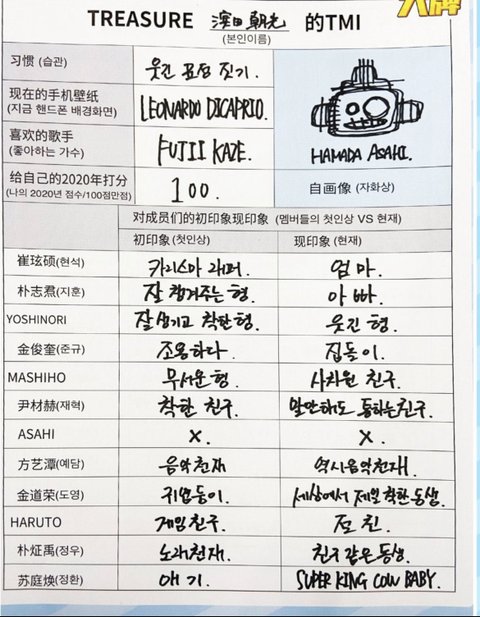 大牌
TREASURE 濱田朝光 的TMI
(본인이름)
习惯 (습관) 웃긴 표정 짓기.
现在的手机壁纸
(지금 핸드폰 배경화면) LEONARDO DICAPRIO.
喜欢的歌手
(좋아하는 가수) FUJII KAZE.
HAMADA ASAHI.
给自己的2020年打分
(나의 2020년 점수/100점만점) 100.
自画像 (자화상)
对成员们的初印象现印象 (멤버들의 첫인상 VS 현재)
初印象 (첫인상) 现印象 (현재)
崔玹硕(현석) 카리스마 래퍼. 엄마.
朴志焄(지훈) 잘 챙겨주는 형. 아빠.
YOSHINORI 잘생기고 착한형. 웃긴 형.
金俊奎(준규) 조용하다. 집돌이.
MASHIHO 무서운 형. 사차원 친구.
尹材赫(재혁) 착한 친구. 말안해도 통하는친구.
ASAHI X. X.
方艺潭(예담) 음악천재 역시음악천재.
金道荣(도영) 귀염둥이. 세상에서 제일 착한동생.
HARUTO 게임친구. 절친.
朴炡禹(정우) 노래천재. 친구같은동생.
苏庭焕(정환) 애기. SUPER KING COW BABY.